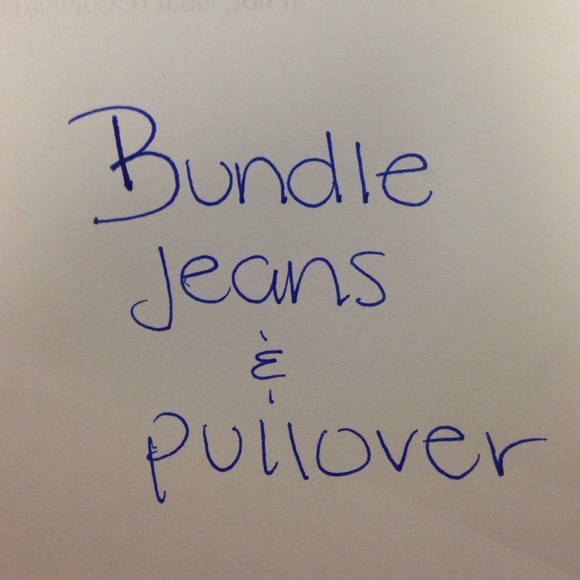 Bundle
jeans
&
pullover